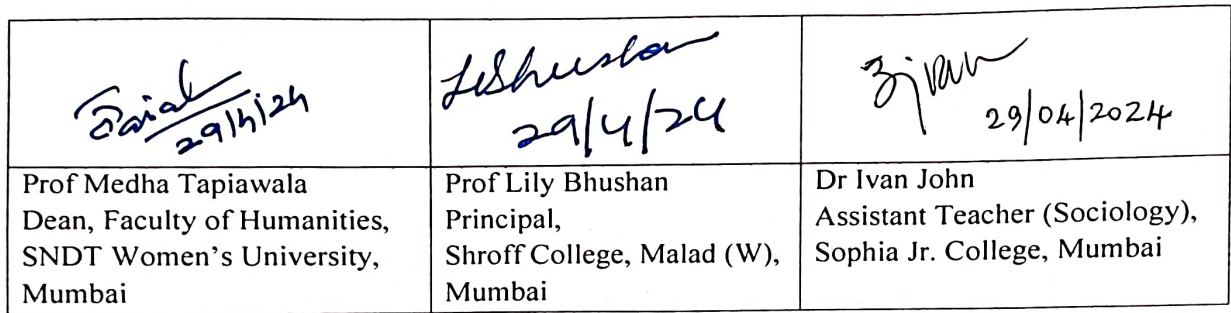 29/4/24
LBhushan
29/4/24
29/04/2024
Prof Medha Tapiawala
Dean, Faculty of Humanities,
SNDT Women's University,
Mumbai
Prof Lily Bhushan
Principal,
Shroff College, Malad (W),
Mumbai
Dr Ivan John
Assistant Teacher (Sociology),
Sophia Jr. College, Mumbai